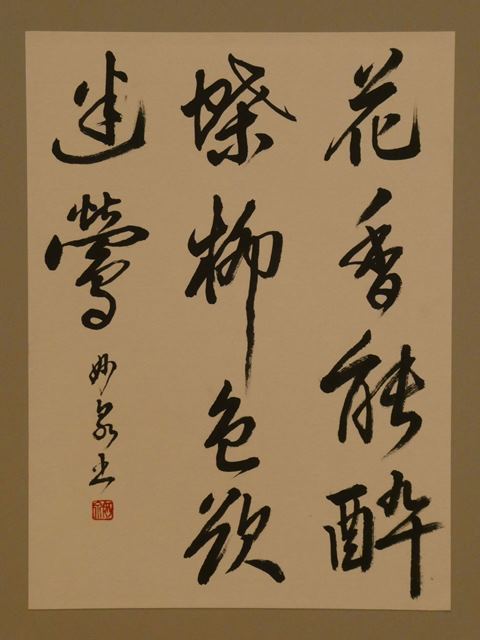 花香能酔
蝶柳色欲
迷鶯
妙泉書